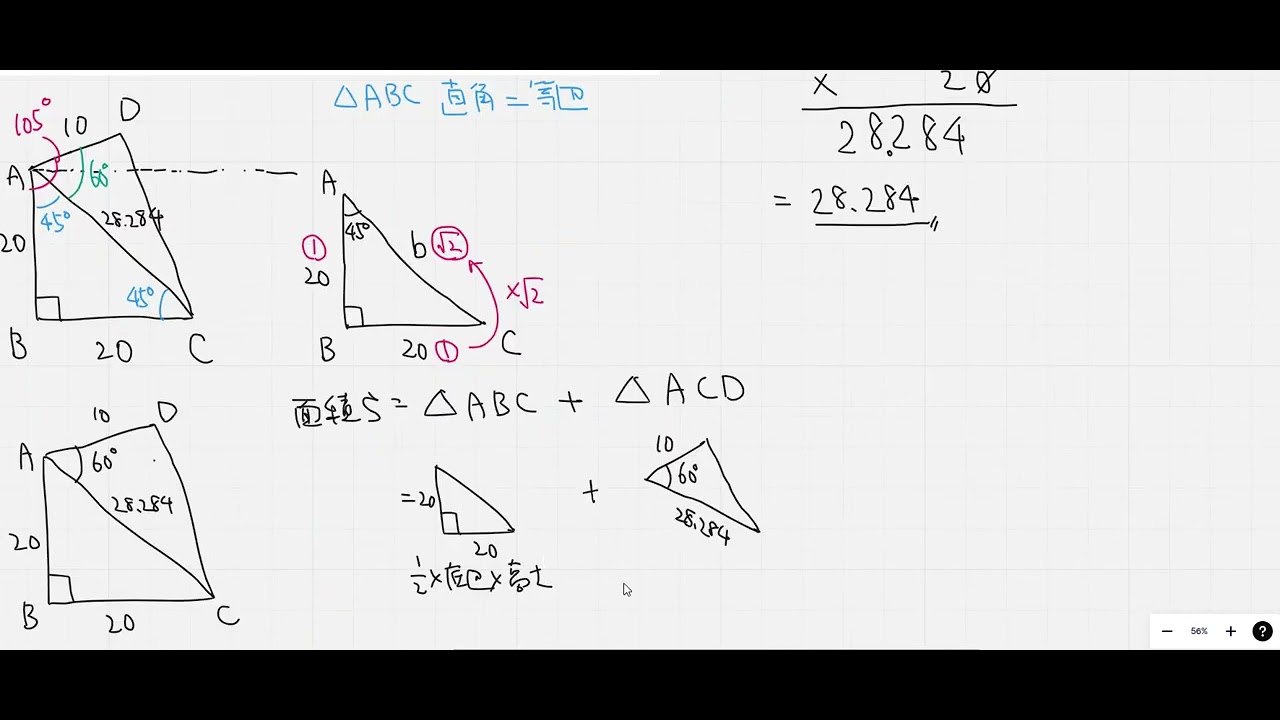 △ABC 直角=等辺
× 20
28.284
= 28.284
105°
10
D
A
60°
45°
28.284
20
45°
B
20
C
A
45°
①
20
b
√2
×√2
B
20 ①
C
面積S = △ABC + △ACD
10
D
A
60°
28.284
20
B
20
C
= 20
20
+
10
60°
28.284
1/2×底辺×高さ
56%